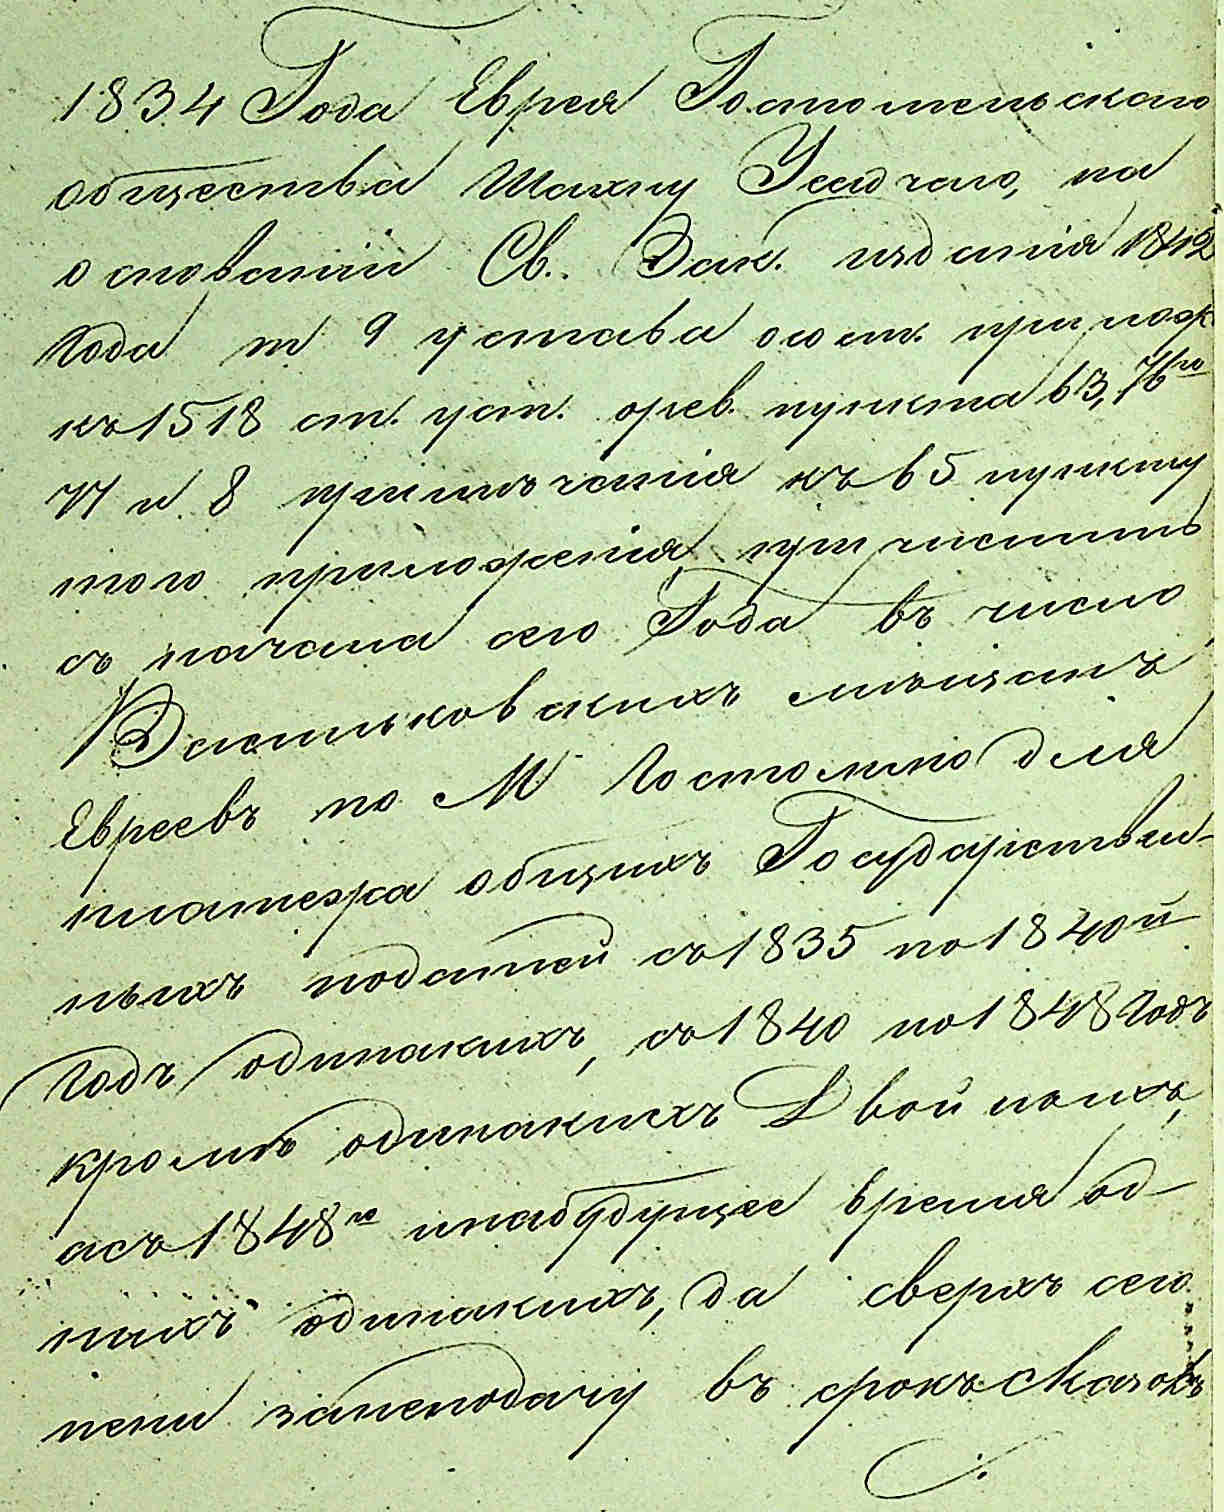 1834 Года Еврея Гостомельскаго
общества Шахну Усадчаго, на
основаніи Св. Зак. изданія 1842
года т 9 устава о сост. прилож
къ 1518 ст. уст. о рев. пункта 63, 76го
77 и 8 примѣчанія къ 65 пункту
того приложенія, причислить
съ начала сего Года въ число
Васильковскихъ мѣщанъ
Евреевъ по М Гостомлю для
платежа общихъ Государствен-
ныхъ податей съ 1835 по 1840й
годъ одинакихъ, съ 1840 по 1848 годъ
кромѣ одинакихъ Двойныхъ,
а съ 1848го и на будущее время од-
нихъ одинакихъ, да сверхъ сего
пени за неподачу въ срокъ сказокъ